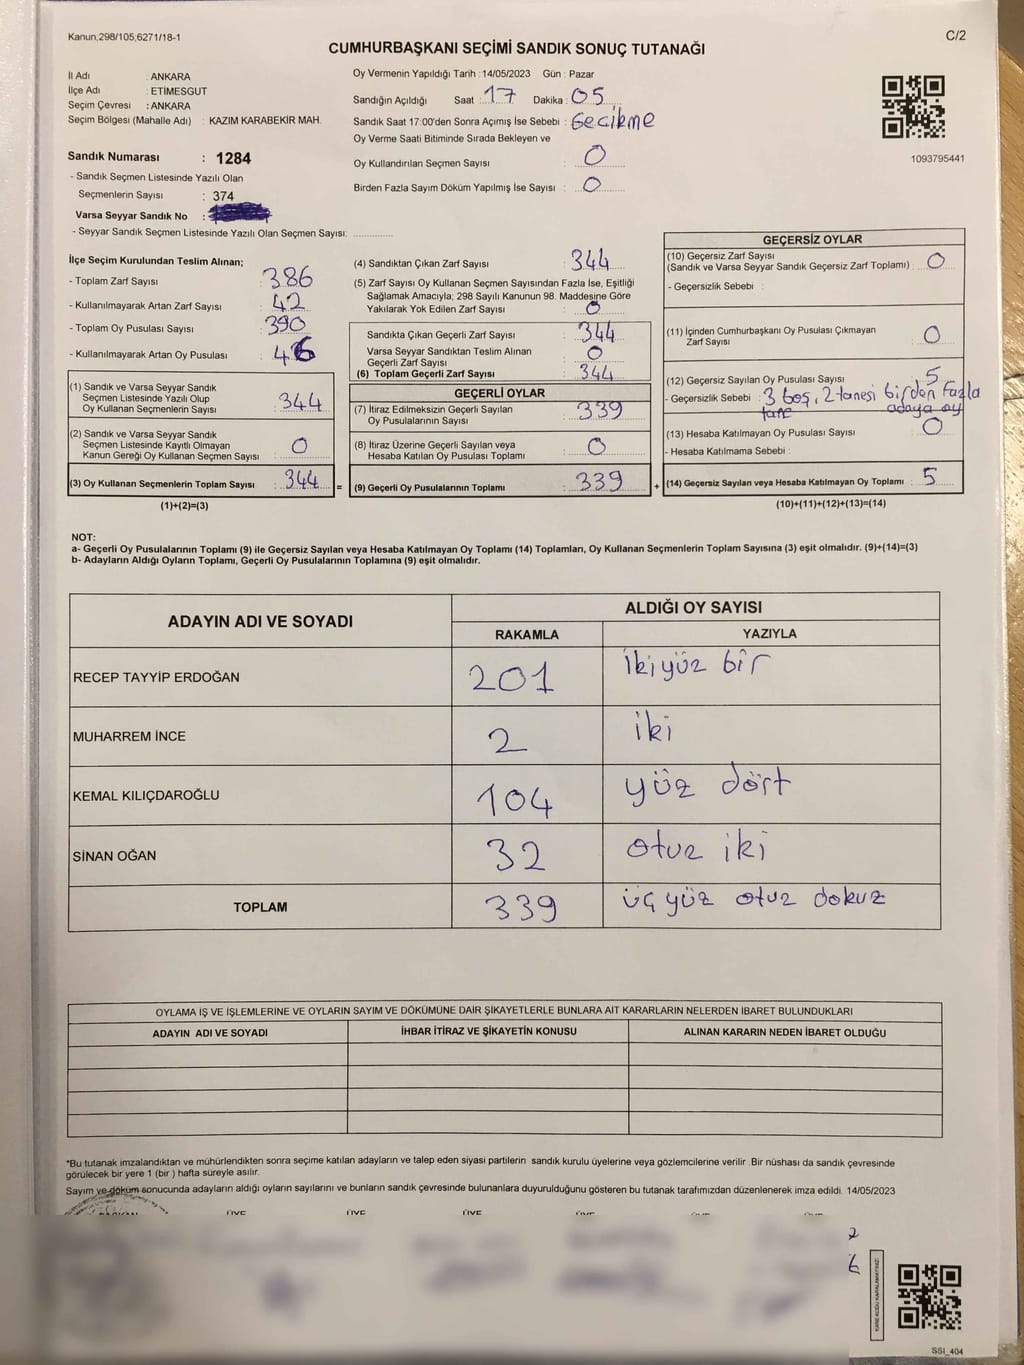 Kanun;298/105,6271/18-1
C/2
CUMHURBAŞKANI SEÇİMİ SANDIK SONUÇ TUTANAĞI
İl Adı : ANKARA
İlçe Adı : ETİMESGUT
Seçim Çevresi : ANKARA
Seçim Bölgesi (Mahalle Adı) : KAZIM KARABEKİR MAH.
Sandık Numarası : 1284
- Sandık Seçmen Listesinde Yazılı Olan
Seçmenlerin Sayısı : 374
Varsa Seyyar Sandık No :
- Seyyar Sandık Seçmen Listesinde Yazılı Olan Seçmen Sayısı:
Oy Vermenin Yapıldığı Tarih : 14/05/2023 Gün : Pazar
Sandığın Açıldığı Saat : 17 Dakika : 05
Sandık Saat 17:00'den Sonra Açımış İse Sebebi : Gecikme
Oy Verme Saati Bitiminde Sırada Bekleyen ve
Oy Kullandırılan Seçmen Sayısı : 0
Birden Fazla Sayım Döküm Yapılmış İse Sayısı : 0
1093795441
İlçe Seçim Kurulundan Teslim Alınan;
- Toplam Zarf Sayısı : 386
- Kullanılmayarak Artan Zarf Sayısı : 42
- Toplam Oy Pusulası Sayısı : 390
- Kullanılmayarak Artan Oy Pusulası : 46
(1) Sandık ve Varsa Seyyar Sandık
Seçmen Listesinde Yazılı Olup
Oy Kullanan Seçmenlerin Sayısı : 344
(2) Sandık ve Varsa Seyyar Sandık
Seçmen Listesinde Kayıtlı Olmayan
Kanun Gereği Oy Kullanan Seçmen Sayısı : 0
(3) Oy Kullanan Seçmenlerin Toplam Sayısı : 344 =
(1)+(2)=(3)
(4) Sandıktan Çıkan Zarf Sayısı : 344
(5) Zarf Sayısı Oy Kullanan Seçmen Sayısından Fazla İse, Eşitliği
Sağlamak Amacıyla; 298 Sayılı Kanunun 98. Maddesine Göre
Yakılarak Yok Edilen Zarf Sayısı : 0
Sandıkta Çıkan Geçerli Zarf Sayısı : 344
Varsa Seyyar Sandıktan Teslim Alınan
Geçerli Zarf Sayısı : 0
(6) Toplam Geçerli Zarf Sayısı : 344
GEÇERLİ OYLAR
(7) İtiraz Edilmeksizin Geçerli Sayılan
Oy Pusulalarının Sayısı : 339
(8) İtiraz Üzerine Geçerli Sayılan veya
Hesaba Katılan Oy Pusulası Toplamı : 0
(9) Geçerli Oy Pusulalarının Toplamı : 339 +
GEÇERSİZ OYLAR
(10) Geçersiz Zarf Sayısı
(Sandık ve Varsa Seyyar Sandık Geçersiz Zarf Toplamı) : 0
- Geçersizlik Sebebi :
(11) İçinden Cumhurbaşkanı Oy Pusulası Çıkmayan
Zarf Sayısı : 0
(12) Geçersiz Sayılan Oy Pusulası Sayısı : 5
- Geçersizlik Sebebi : 3 boş, 2 tanesi birden fazla
tane adaya oy
(13) Hesaba Katılmayan Oy Pusulası Sayısı : 0
- Hesaba Katılmama Sebebi :
(14) Geçersiz Sayılan veya Hesaba Katılmayan Oy Toplamı : 5
(10)+(11)+(12)+(13)=(14)
NOT:
a- Geçerli Oy Pusulalarının Toplamı (9) ile Geçersiz Sayılan veya Hesaba Katılmayan Oy Toplamı (14) Toplamları, Oy Kullanan Seçmenlerin Toplam Sayısına (3) eşit olmalıdır. (9)+(14)=(3)
b- Adayların Aldığı Oyların Toplamı, Geçerli Oy Pusulalarının Toplamına (9) eşit olmalıdır.
ADAYIN ADI VE SOYADI
ALDIĞI OY SAYISI
RAKAMLA YAZIYLA
RECEP TAYYİP ERDOĞAN 201 İkiyüz bir
MUHARREM İNCE 2 iki
KEMAL KILIÇDAROĞLU 104 yüz dört
SİNAN OĞAN 32 otuz iki
TOPLAM 339 üçyüz otuz dokuz
OYLAMA İŞ VE İŞLEMLERİNE VE OYLARIN SAYIM VE DÖKÜMÜNE DAİR ŞİKAYETLERLE BUNLARA AİT KARARLARIN NELERDEN İBARET BULUNDUKLARI
ADAYIN ADI VE SOYADI İHBAR İTİRAZ VE ŞİKAYETİN KONUSU ALINAN KARARIN NEDEN İBARET OLDUĞU
*Bu tutanak imzalandıktan ve mühürlendikten sonra seçime katılan adayların ve talep eden siyasi partilerin sandık kurulu üyelerine veya gözlemcilerine verilir .Bir nüshası da sandık çevresinde
görülecek bir yere 1 (bir ) hafta süreyle asılır.
Sayım ve döküm sonucunda adayların aldığı oyların sayılarını ve bunların sandık çevresinde bulunanlara duyurulduğunu gösteren bu tutanak tarafımızdan düzenlenerek imza edildi. 14/05/2023
ÜYE ÜYE ÜYE
2
6
KARE KODU KARALAMAYINIZ!
SSİ_404